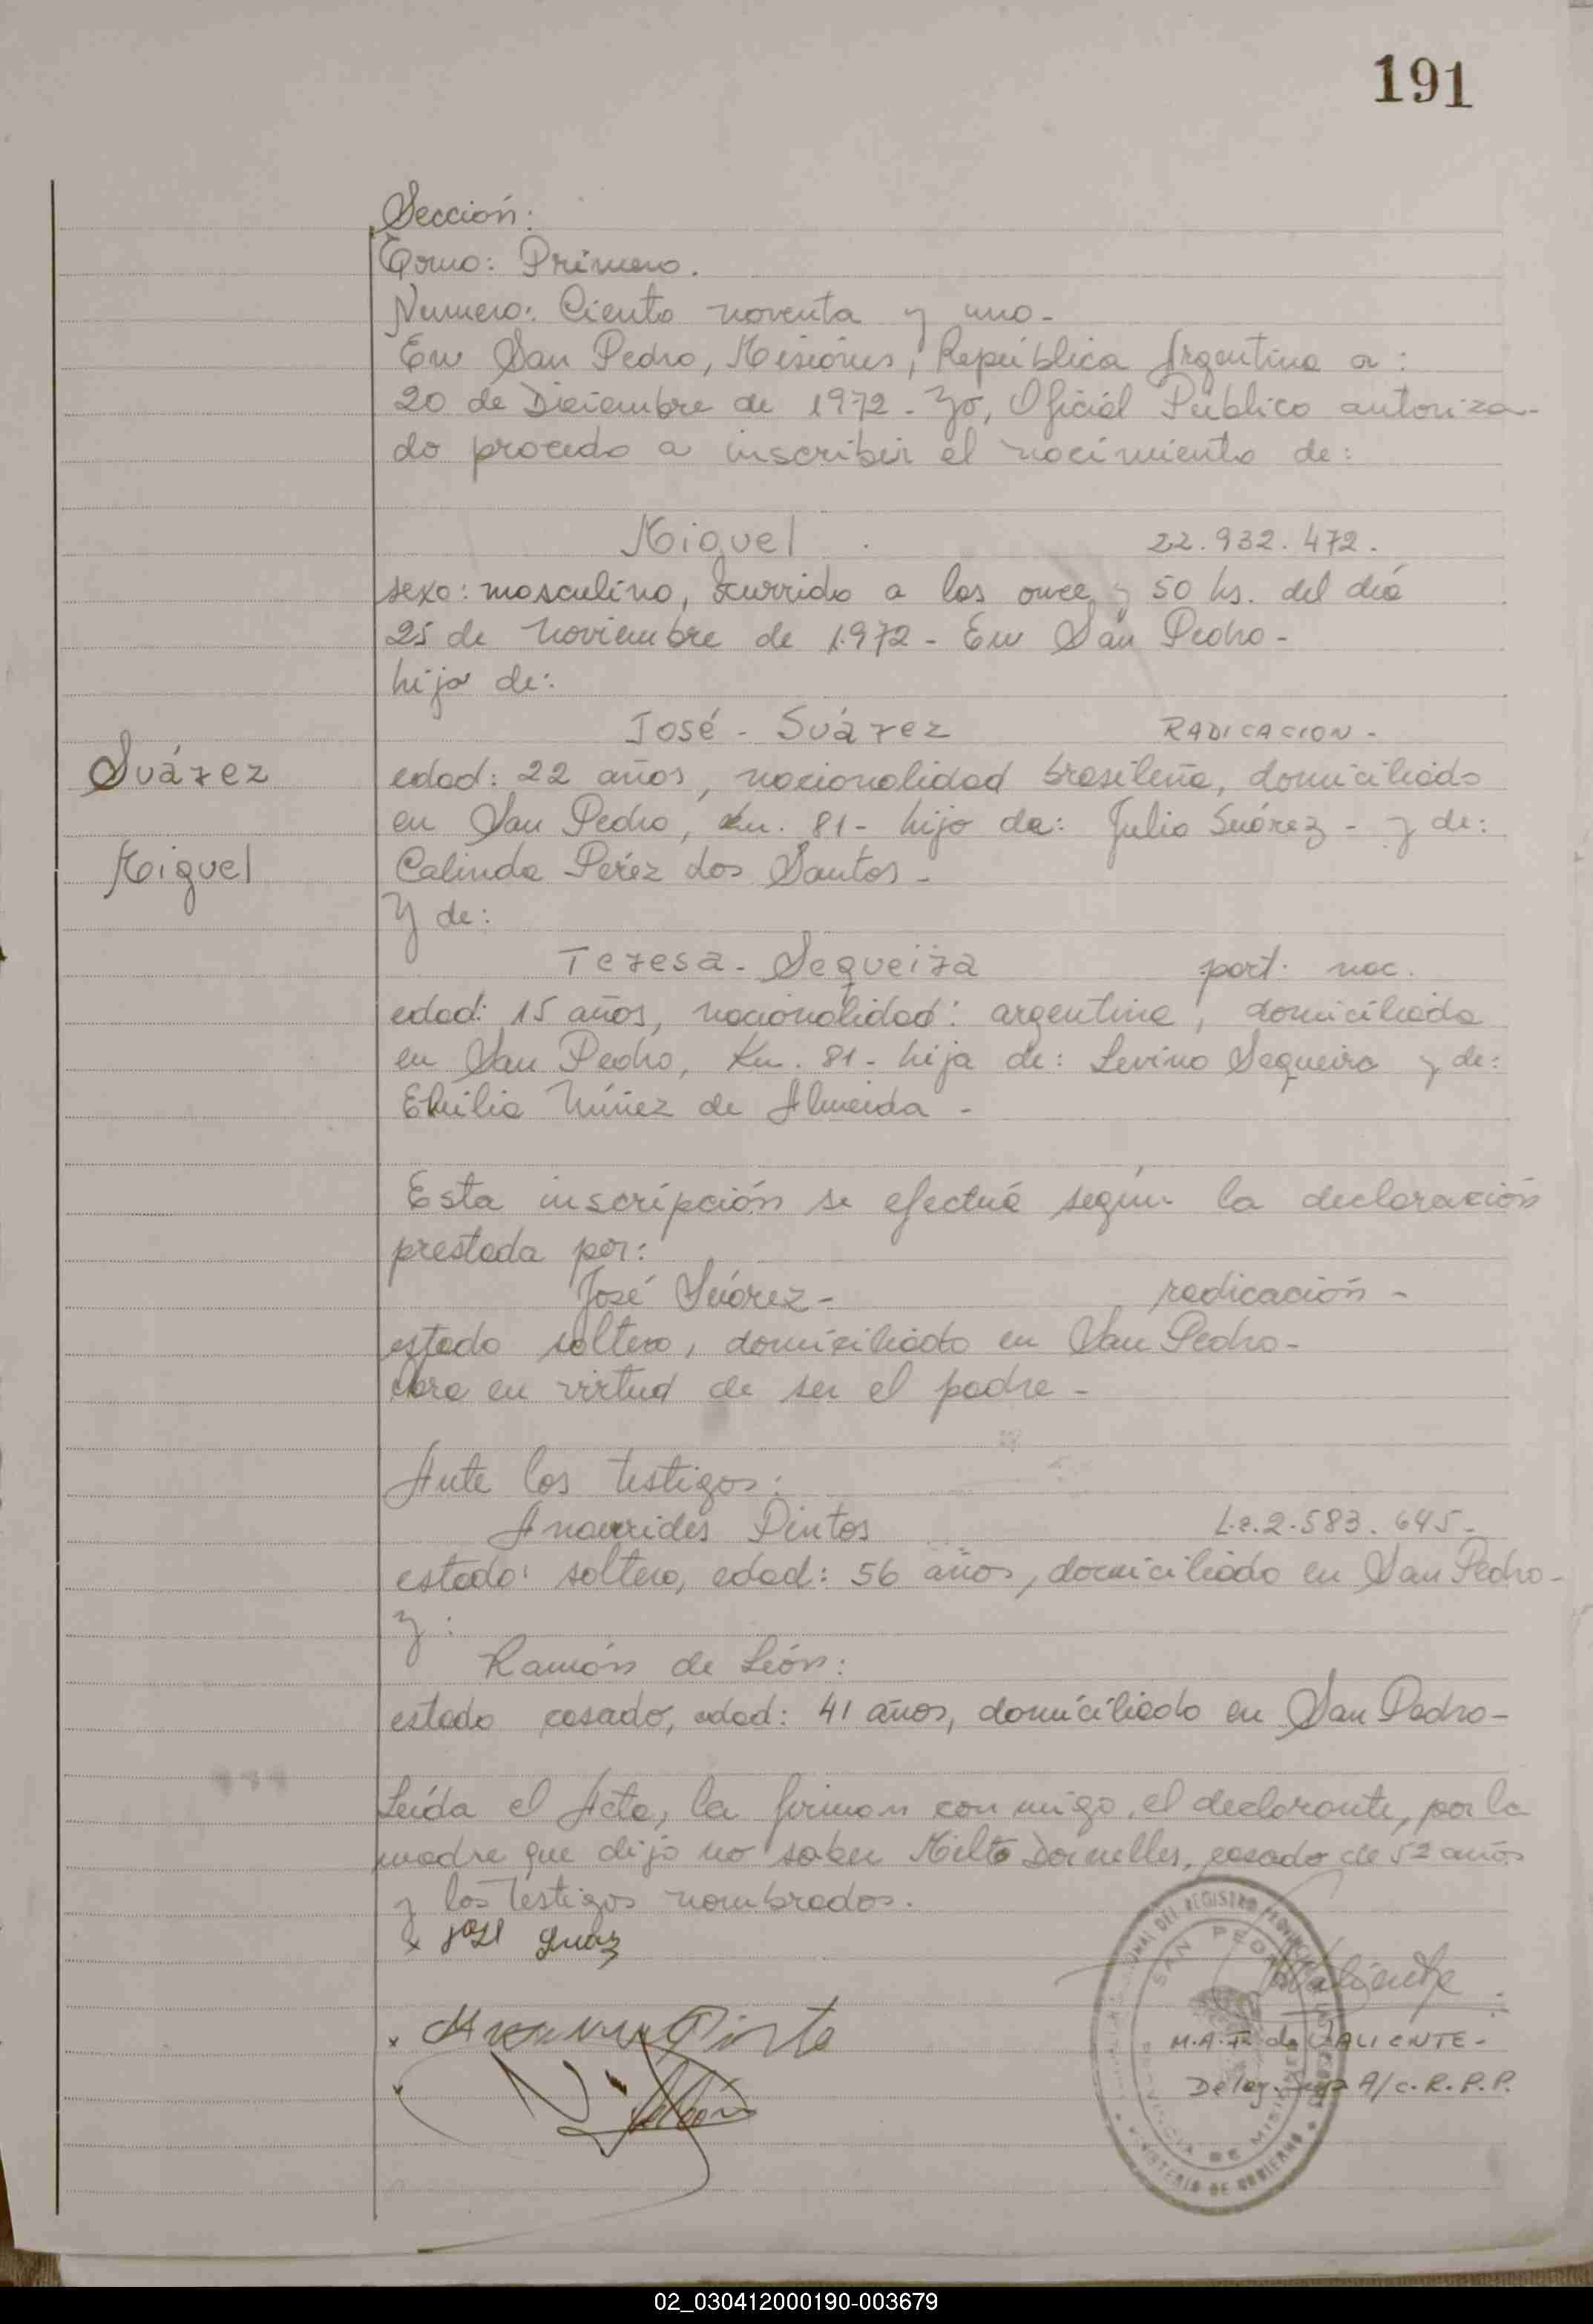 191
Sección:
Tomo: Primero.
Numero: Ciento noventa y uno-
En San Pedro, Misiones, República Argentina a:
20 de Diciembre de 1972- Yo, Oficial Público autoriza-
do procedo a inscribir el nacimiento de:
Miguel 22.932.472.
sexo: masculino, ocurrido a las once y 50 hs. del día
25 de Noviembre de 1972- En San Pedro-
hijo de:
José - Suárez RADICACION-
Suárez
edad: 22 años, nacionalidad brasileña, domiciliado
en San Pedro, Km. 81- hijo de: Julio Suárez - y de:
Miguel
Calinda Peréz dos Santos-
Y de:
Teresa- Sequeira part. nac.
edad: 15 años, nacionalidad: argentina, domiciliada
en San Pedro, Km. 81- hija de: Levino Sequeira y de:
Emilia Núñez de Almeida -
Esta inscripción se efectuá según la declaración
prestada por:
José Suárez- radicación-
estado soltero, domiciliado en San Pedro-
obra en virtud de ser el padre-
Ante los testigos:
Pintos L.e.2.583.645-
estado: soltero, edad: 56 años, domiciliado en San Pedro-
y:
Ramón de León:
estado casado, edad: 41 años, domiciliado en San Pedro-
Leída el Acta, la firman con migo, el declarante, por la
madre que dijo no saber Milto Dornelles, casado de 52 años
y los testigos nombrados.
x José
x Pinto
Valiente
M.A.F. de VALIENTE-
Deleg. A/c.R.P.P.
SAN PEDRO
MINISTERIO DE GOBIERNO
02_030412000190-003679